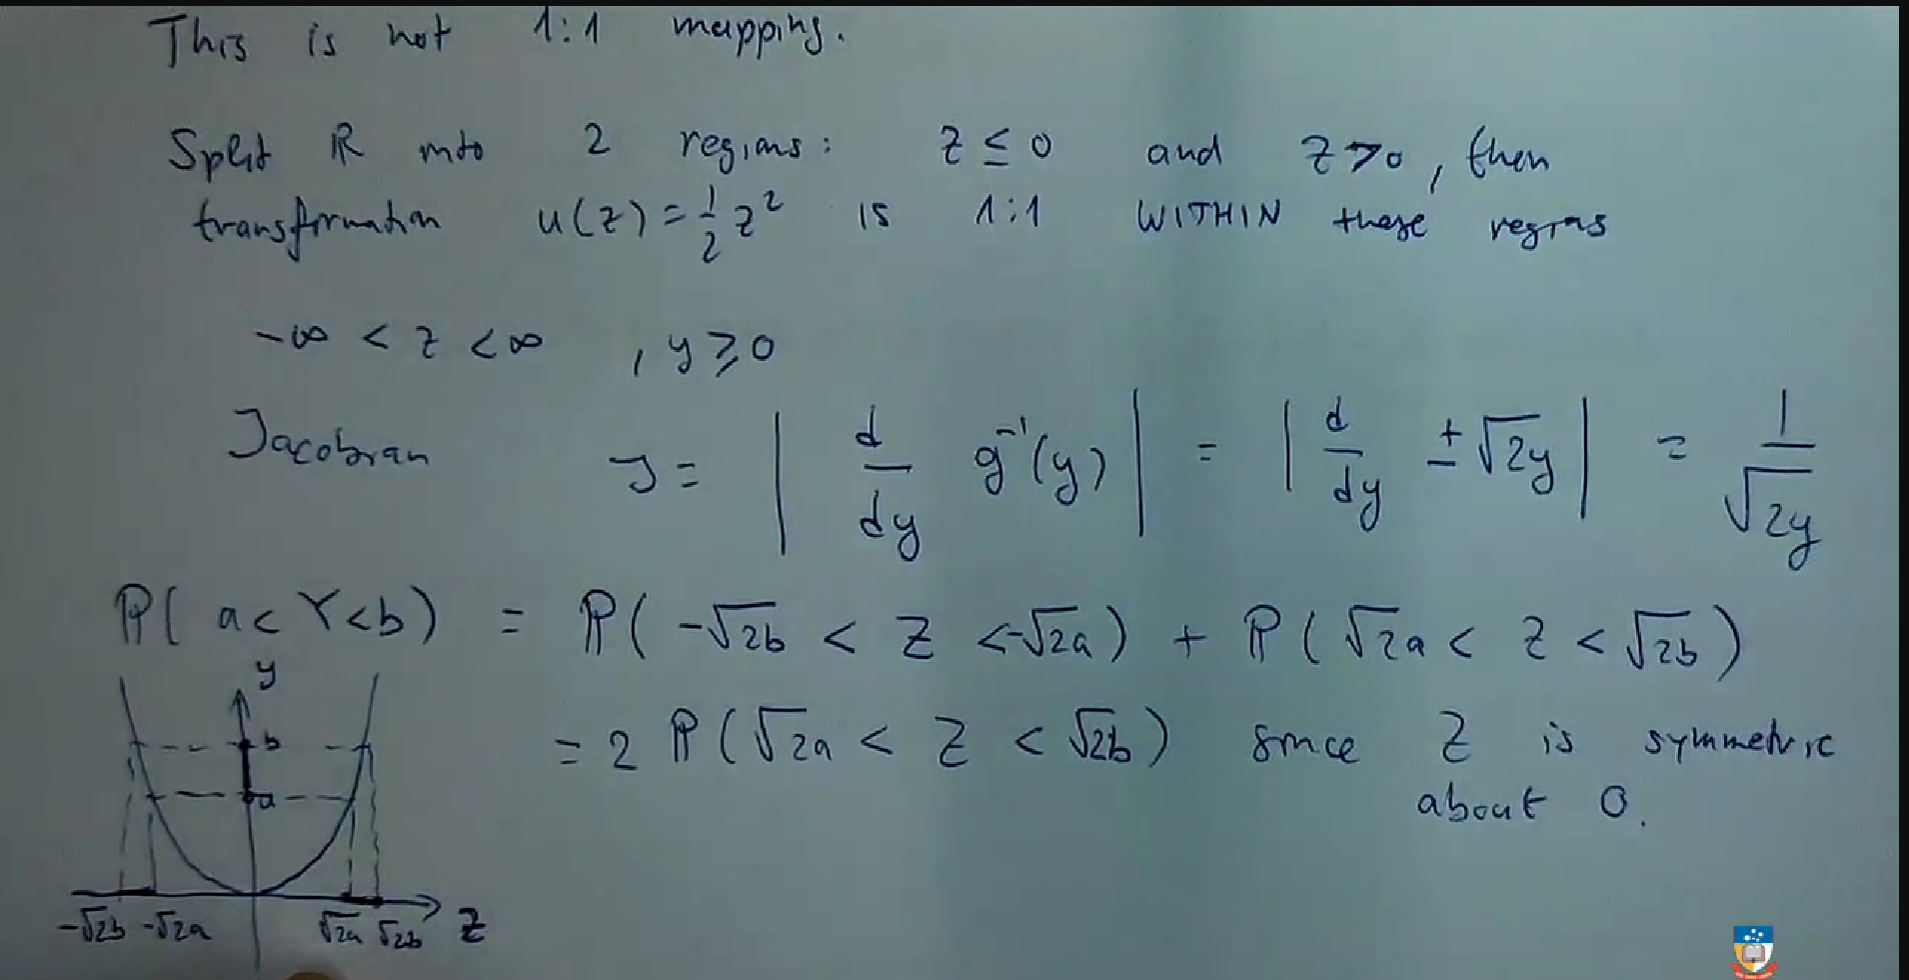 This is not 1:1 mapping.
Split ℝ into 2 regions: z ≤ 0 and z > 0, then
transformation u(z) = 1/2 z² is 1:1 WITHIN these regions
-∞ < z < ∞ , y ≥ 0
Jacobian J = | d/dy g⁻¹(y) | = | d/dy ±√2y | = 1/√2y
ℙ( a < Y < b) = ℙ( -√2b < Z < -√2a ) + ℙ( √2a < Z < √2b )
= 2 ℙ( √2a < Z < √2b ) since Z is symmetric
about 0.
y
b
a
-√2b -√2a √2a √2b z